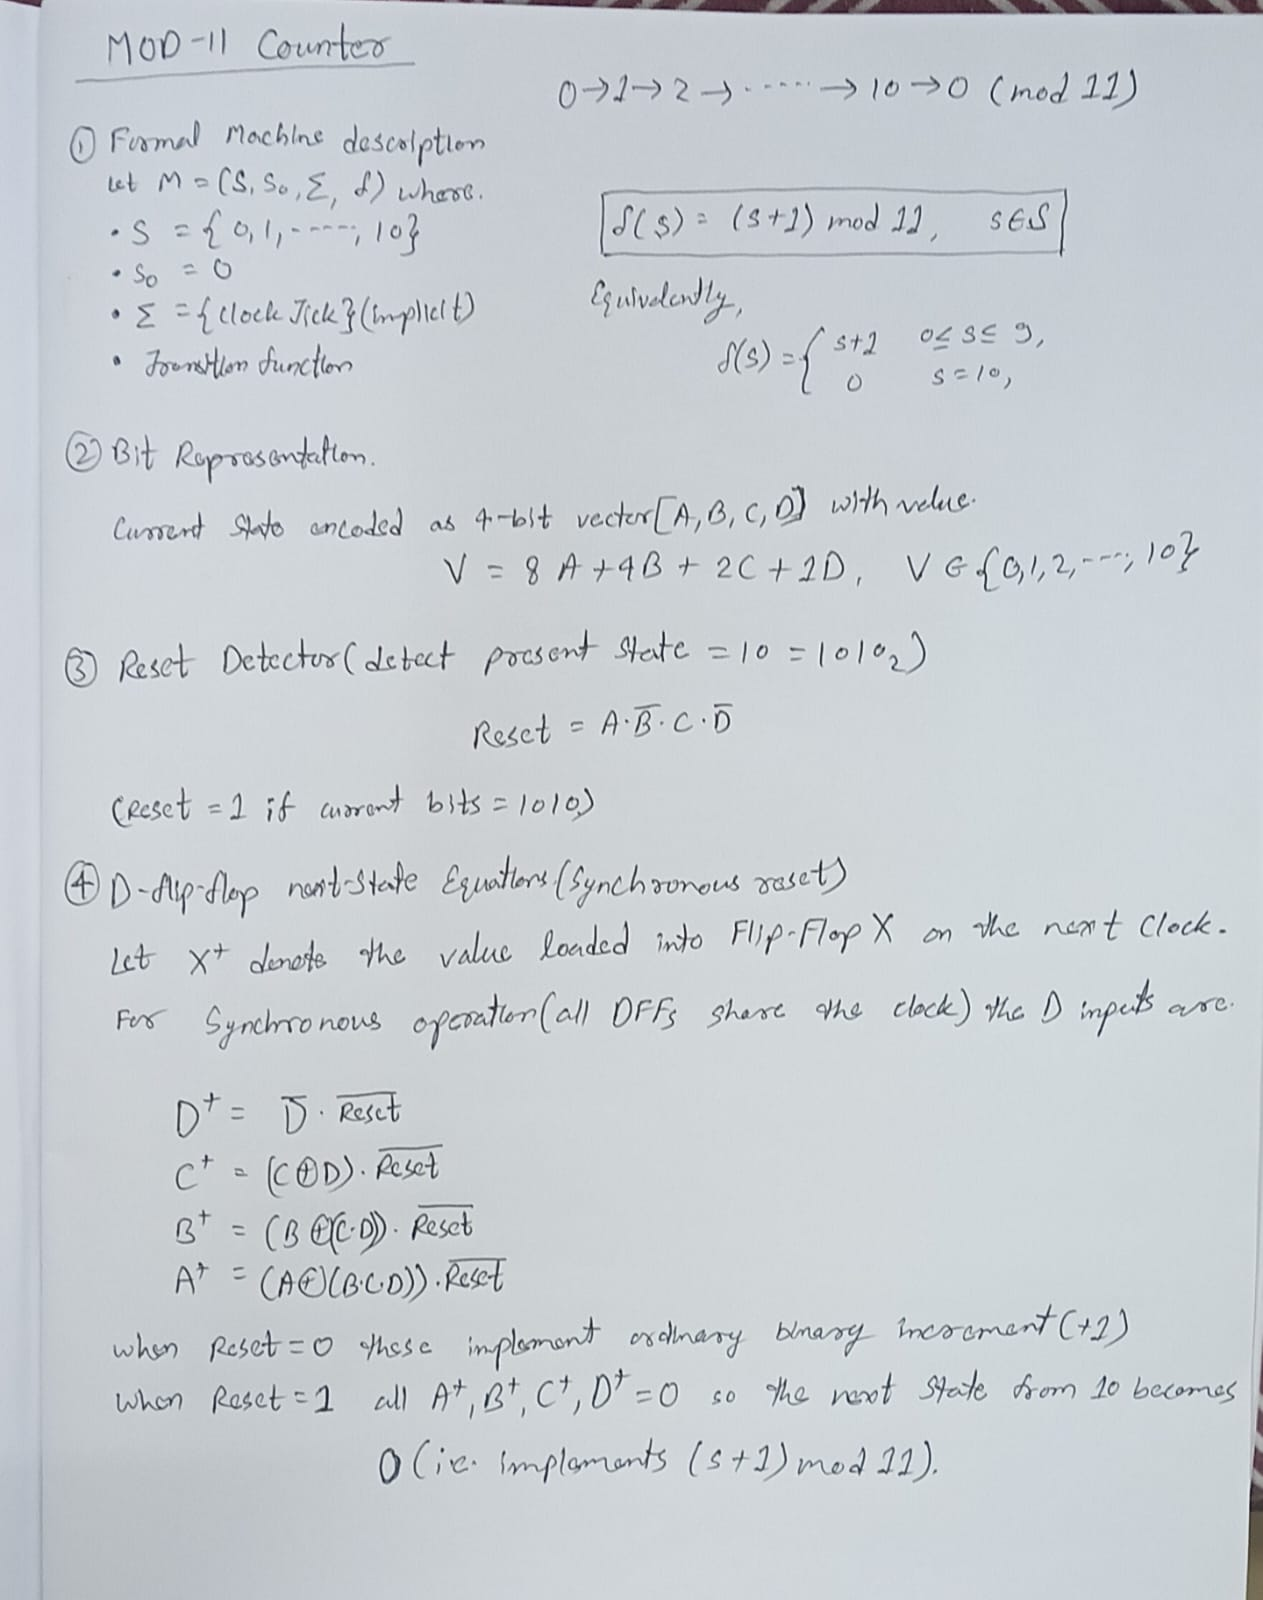 MOD-11 Counter
0→1→2→-----→10→0 (mod 11)
① Formal Machine description
Let M = (S, S₀, Σ, δ) where.
• S = {0,1,----, 10}
• S₀ = 0
• Σ = {Clock Tick}(implicit)
• Transition function
δ(s) = (s+1) mod 11, s∈S
Equivalently,
δ(s) = { s+1 0≤s≤9,
0 s=10,
② Bit Representation.
Current State encoded as 4-bit vector[A, B, C, D] with value.
V = 8A+4B+2C+1D, V∈{0,1,2,---, 10}
③ Reset Detector(detect present State = 10 = 1010₂)
Reset = A·B̅·C·D̅
(Reset = 1 if current bits = 1010)
④ D-flip-flop next-State Equations(Synchronous reset)
Let X⁺ denote the value loaded into Flip-Flop X on the next Clock.
For Synchronous operation(all DFFs share the clock) the D inputs are.
D⁺ = D̅ · R̅e̅s̅e̅t̅
C⁺ = (C⊕D)· R̅e̅s̅e̅t̅
B⁺ = (B⊕(C·D))· R̅e̅s̅e̅t̅
A⁺ = (A⊕(B·C·D))·R̅e̅s̅e̅t̅
when Reset=0 these implement ordinary binary increment(+1)
When Reset=1 all A⁺, B⁺, C⁺, D⁺=0 so the next State from 10 becomes
0 (i.e. implements (s+1) mod 11).